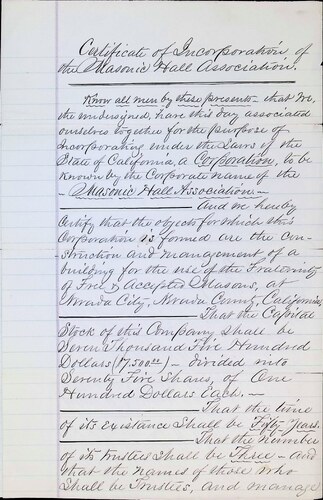 Certificate of Incorporation of
the Masonic Hall Association.
Know all men by these presents that We,
the undersigned, have this day associated
ourselves together for the purpose of
incorporating under the Laws of the
State of California, a Corporation, to be
known by the Corporate name of the
Masonic Hall Association—
And we hereby
Certify that the objects for which this
Corporation is formed are the con-
struction and management of a
building for the use of the Fraternity
of Free & Accepted Masons, at
Nevada City, Nevada County, California,
That the Capital
Stock of this Company shall be
Seven Thousand Five Hundred
Dollars ($7,500.00) — divided into
Seventy Five Shares, of One
Hundred Dollars Each. —
That the time
of its existence shall be Fifty Years.
That the number
of its trustees shall be Three — and
that the names of those who
shall be Trustees, and manage